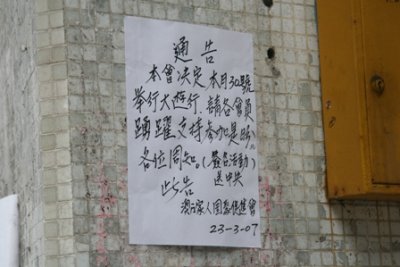 通告
本會決定本月30號
舉行大遊行.請各會員
踴躍支持参加是盼。
各位周知。(簽名活動)
送中央
此告
澳门家人团聚促進會
23-3-07